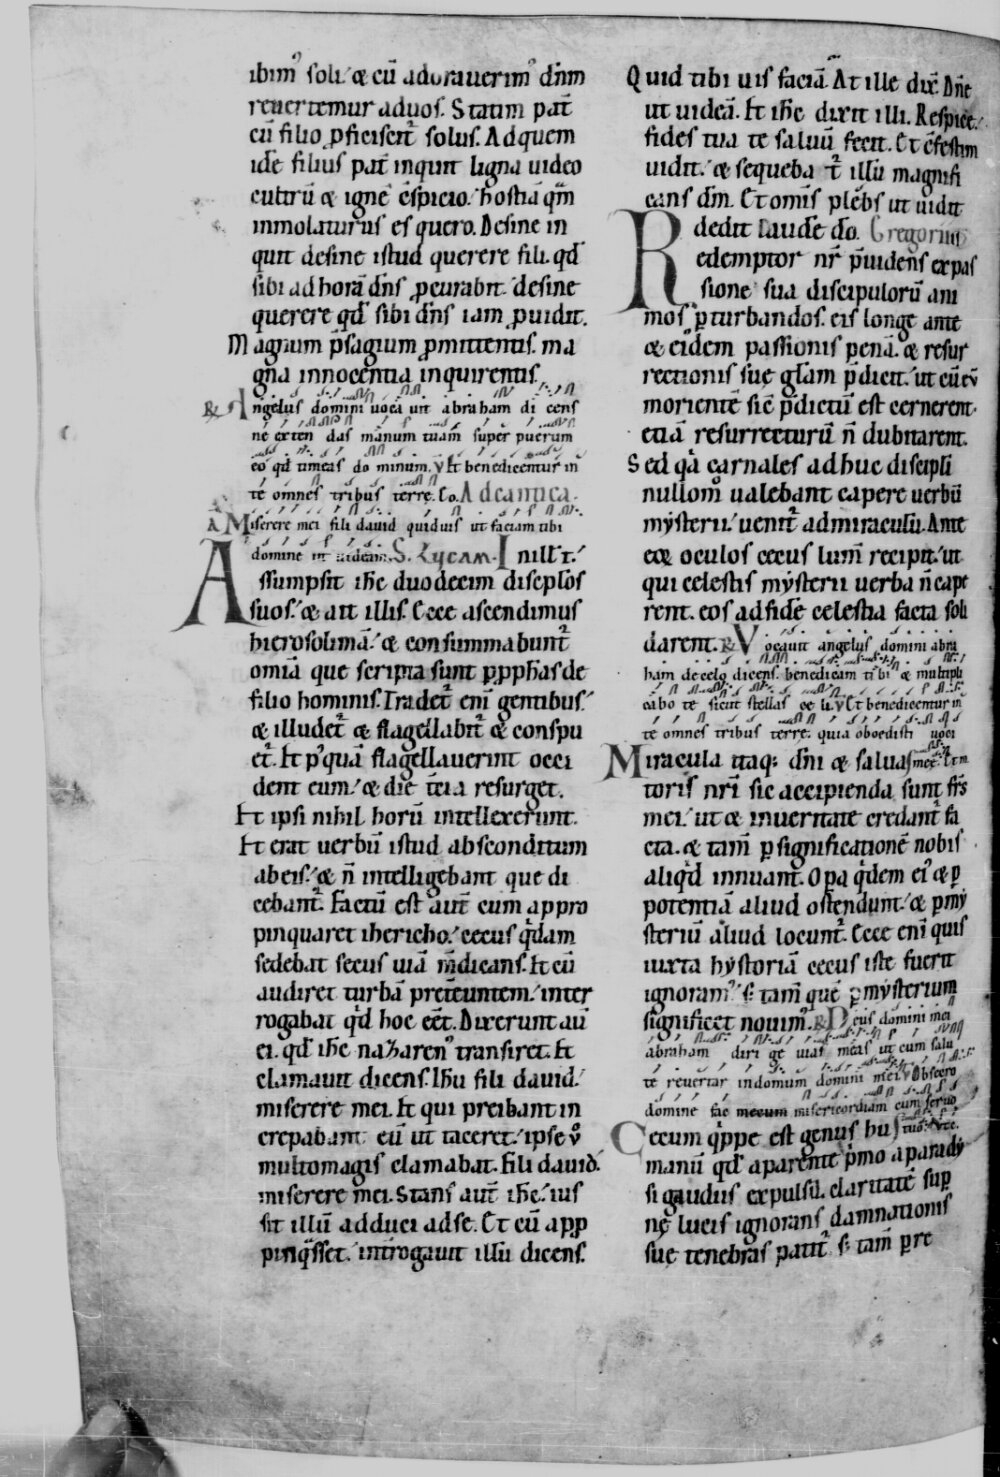 ibimꝰ soli. & cū adorauerimꝰ dn̄m
reuertemur ad uos. Statim pat̄
cū filio ꝓficiscit᷑ solus. Ad quem
idē filius pat̄ inquit ligna uideo
cultrū & ignē c̄spicio. hostiā qm̄
inmolaturus es quero. Desine in
quit desine istud querere fili. qd̄
sibi ad horā dn̄s ꝓcurabit. desine
querere qd̄ sibi dn̄s iam ꝓuidit.
Magnum p̄sagium ꝓmittentis. ma
gna innocentia inquirentis.
℟ Angelus domini uocauit abraham dicens
ne extendas manum tuam super puerum
eo qd̄ timeas dominum. ℣ Et benedicentur in
te omnes tribus terre. Co. Ad cantica.
A Miserere mei fili dauid quid uis ut faciam tibi
domine ut uideam. S. Lucam. In ill' t'.
Assumpsit ihc̄ duodecim discip̄los
suos. & ait illis. Ecce ascendimus
hierosolimā. & consummabunt᷑
omīa que scripta sunt ꝑ ꝓphās de
filio hominis. Tradet᷑ enī gentibus.
& illudet᷑ & flagellabit᷑ & conspu
et᷑. Et pꝰquā flagellauerint occi
dent eum. & die t̄cia resurget.
Et ipsi nihil horū intellexerunt.
Et erat uerbū istud absconditum
ab eis. & n̄ intelligebant que di
cebant᷑. Factū est aut̄ cum appro
pinquaret ihericho. cecus qͥdam
sedebat secus uiā m̄dicans. Et cū
audiret turbā pret̄euntem. inter
rogabat qd̄ hoc eēt. Dixerunt aū
ei. qd̄ ihc̄ nazarenꝰ transiret. Et
clamauit dicens. Ihu fili dauid.
miserere mei. Et qui preibant in
crepabant eū ut taceret. ipse u̾
multo magis clamabat. Fili dauid.
miserere mei. Stans aut̄ ihc̄. ius
sit illū adduci ad se. Et cū app̄
pinqͣsset. int̄rogauit illū dicens.
Quid tibi uis faciā. At ille dix̄. Dn̄e
ut uideā. Et ihc̄ dixit illi. Respice.
fides tua te saluū fecit. Et c̄festim
uidit. & sequebat᷑ illū magnifi
cans dm̄. Et omīs plebs ut uidit
dedit laudē dō. Gregorius
Redemptor nr̄ p̄uidens ex pas
sione sua discipulorū ani
mos ꝑturbandos. eis longe ante
& eidem passionis penā. & resur
rectionis suę gl̄am p̄dicit. ut cū eū
morientē sic̄ p̄dictū est cernerent.
etiā resurrecturū n̄ dubitarent.
Sed qͣ carnales adhuc discip̄li
nullo mꝰ ualebant capere uerbū
mẏsterii. uenit᷑ ad miraculū. Ante
eoꝝ oculos cecus lum̄ recipit. ut
qui celestis mẏsterii uerba n̄ cape
rent. eos ad fidē celestia facta soli
darent. ℟ Vocauit angelus domini abra
ham de celo dicens. benedicam tibi & multipli
cabo te sicut stellas celi. ℣ Et benedicentur in
te omnes tribus terre. quia oboedisti uoci
Miracula itaq; dn̄i & salua mee. Et m.
toris nr̄i sic accipienda sunt fr̄s
mei. ut & in ueritate credant᷑ fa
cta. & tam̄ ꝑ significationē nobis
aliqͥd innuant. Oꝑa qͥdem eiꝰ & ꝑ
potentiā aliud ostendunt. & ꝑ mẏ
steriū aliud locunt᷑. Ecce enī quis
iuxta hẏstoriā cecus iste fuerit
ignoramꝰ. s; tam̄ quē ꝑ mẏsterium
significet nouimꝰ. ℟ Deus domini mei
abraham dirige uiam meam ut cum salu
te reuertar in domum domini mei. ℣ Obsecro
domine fac mecum misericordiam cum seruo
Cecum qͥppe est genus hu tuo. Vt c.
manū qd̄ a parente p̄mo a paradẏ
si gaudiis expulsū. claritatē sup̄
nę lucis ignorans damnationis
suę tenebras patit᷑. s; tam̄ ꝑ re